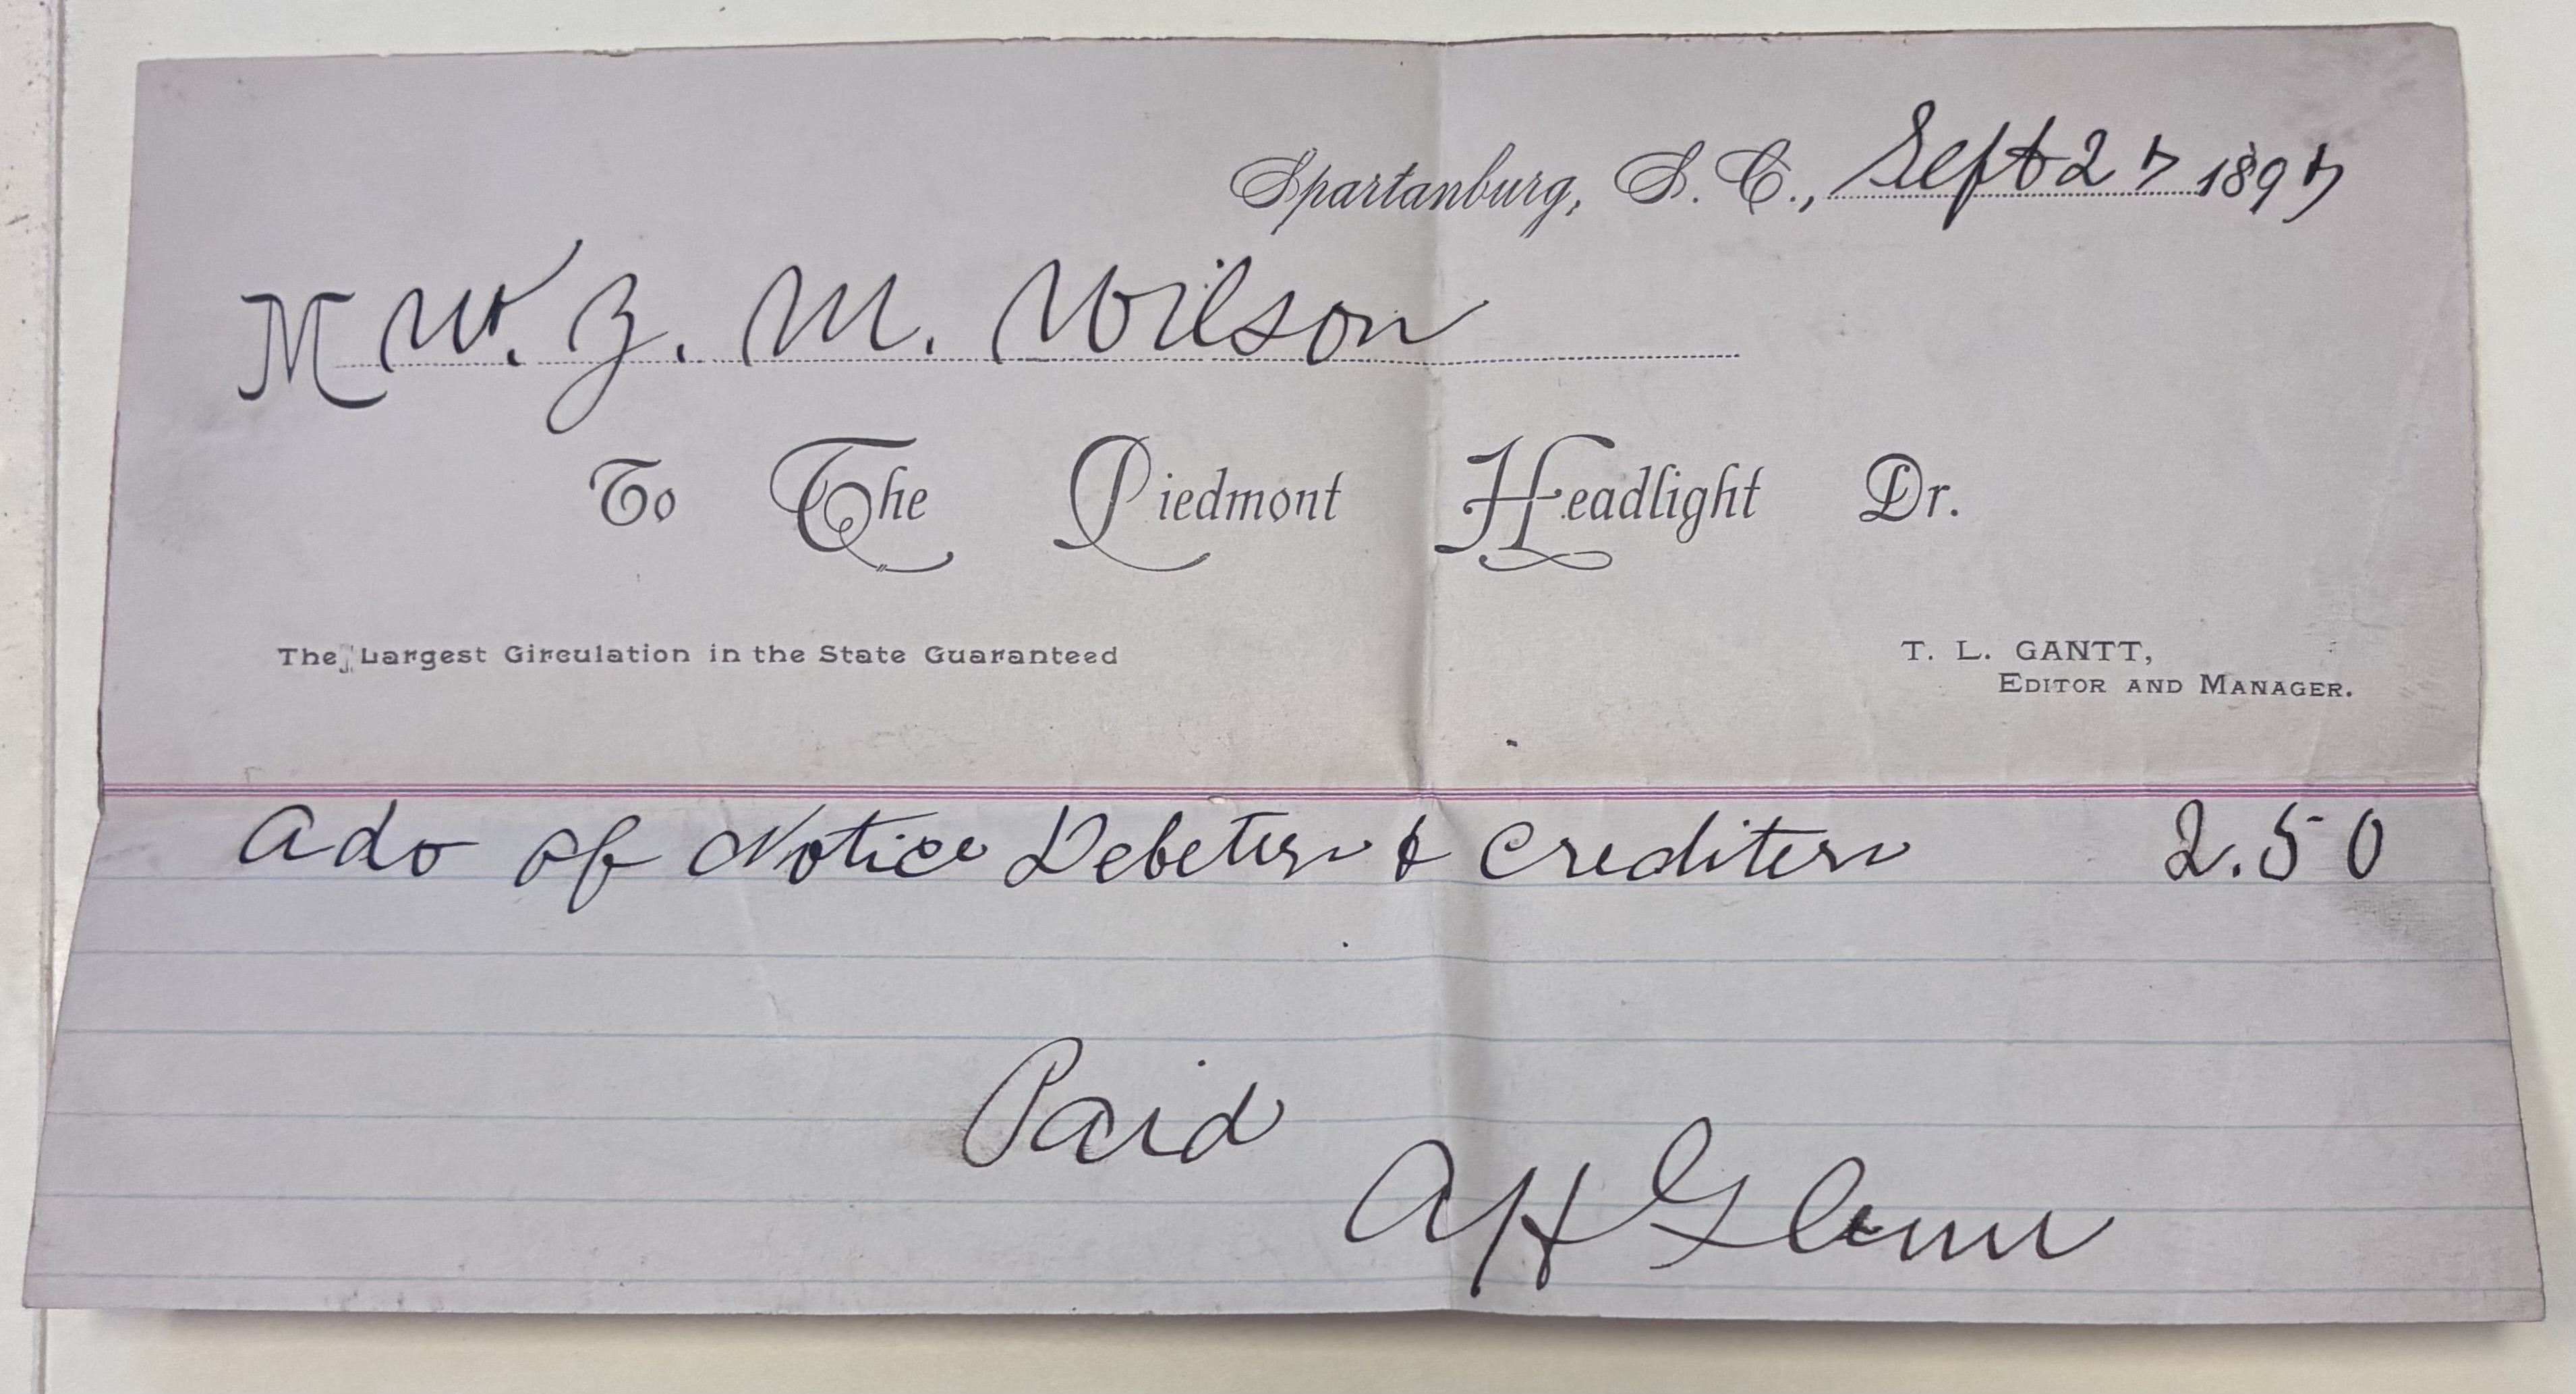 Spartanburg, S. C., Sept 27 1897
M W. Z. M. Wilson
To The Piedmont Headlight Dr.
The Largest Circulation in the State Guaranteed
T. L. GANTT,
EDITOR AND MANAGER.
Adv of Notice Debeters & Crediters 2.50
Paid
A H Glenn